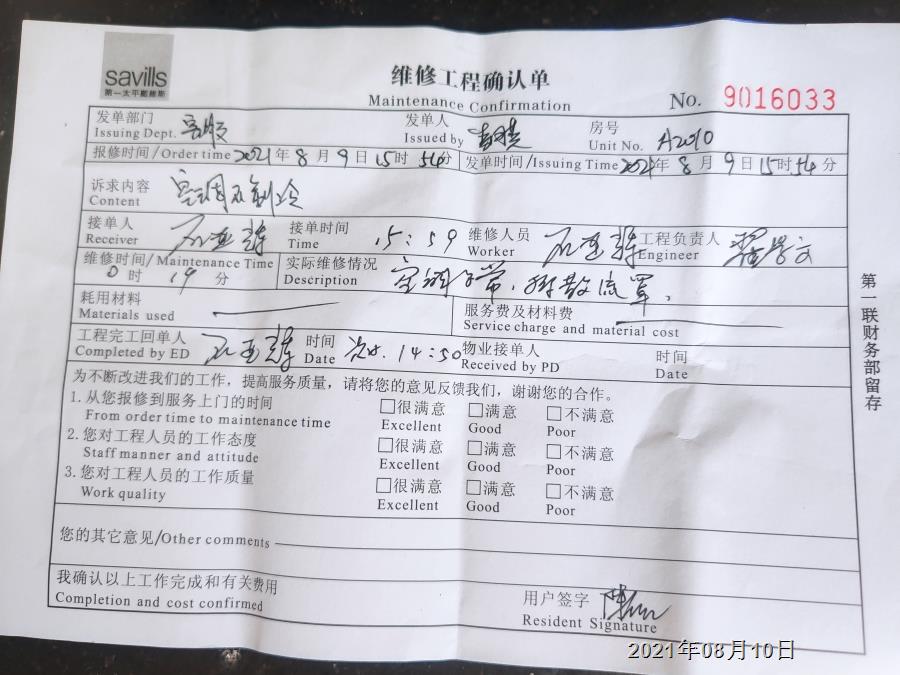 savills
第一太平戴维斯
维修工程确认单
Maintenance Confirmation
No. 9016033
发单部门
Issuing Dept. 客服
发单人
Issued by
房号
Unit No. A2010
报修时间/Order time 2021年8月9日15时54分
发单时间/Issuing Time 2021年8月9日15时54分
诉求内容
Content 空调不制冷
接单人
Receiver
接单时间
Time 15:59
维修人员
Worker
工程负责人
Engineer
维修时间/Maintenance Time
0时19分
实际维修情况
Description 空调正常,拆散流罩,
耗用材料
Materials used
服务费及材料费
Service charge and material cost
工程完工回单人
Completed by ED
时间
Date 次日.14:50
物业接单人
Received by PD
时间
Date
为不断改进我们的工作，提高服务质量，请将您的意见反馈我们，谢谢您的合作。
1.从您报修到服务上门的时间 □很满意 □满意 □不满意
From order time to maintenance time Excellent Good Poor
2.您对工程人员的工作态度 □很满意 □满意 □不满意
Staff manner and attitude Excellent Good Poor
3.您对工程人员的工作质量 □很满意 □满意 □不满意
Work quality Excellent Good Poor
您的其它意见/Other comments
我确认以上工作完成和有关费用
Completion and cost confirmed
用户签字
Resident Signature
第一联财务部留存
2021年08月10日